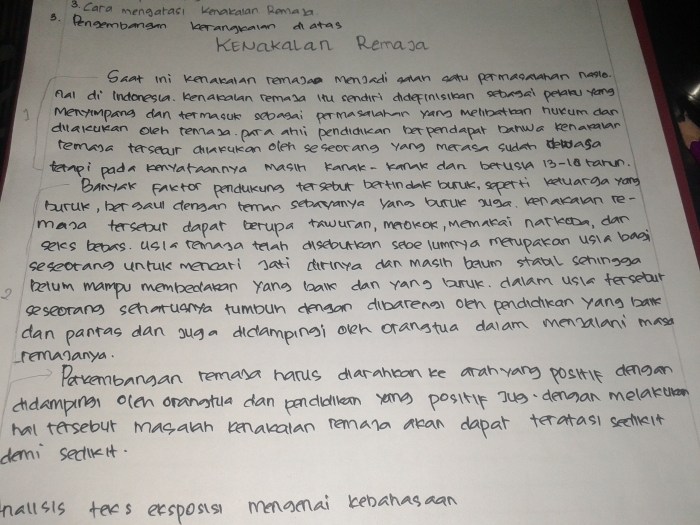 3. Cara mengatasi Kenakalan Remaja
3. Pengembangan kerangkaian di atas
KENAKALAN Remaja
Saat ini kenakalan remaja menjadi salah satu permasalahan nasio-
nal di Indonesia. kenakalan remaja itu sendiri didefinisikan sebagai pelaku yang
1 menyimpang dan termasuk sebagai permasalahan yang melibatkan hukum dan
dilakukan oleh remaja. para ahli pendidikan berpendapat bahwa kenakalan
remaja tersebut dilakukan oleh seseorang yang merasa sudah dewasa
tetapi pada kenyataannya masih kanak-kanak dan berusia 13-18 tahun.
Banyak faktor pendukung tersebut bertindak buruk, seperti keluarga yang
buruk, bergaul dengan teman sebayanya yang buruk juga. kenakalan re-
maja tersebut dapat berupa tawuran, merokok, memakai narkoba, dan
seks bebas. usia remaja telah disebutkan sebelumnya merupakan usia bagi
seseorang untuk mencari jati dirinya dan masih belum stabil sehingga
belum mampu membedakan yang baik dan yang buruk. dalam usia tersebut
2 seseorang seharusnya tumbuh dengan dibarengi oleh pendidikan yang baik
dan pantas dan juga didampingi oleh orangtua dalam menjalani masa
remajanya.
Perkembangan remaja harus diarahkan ke arah yang positif dengan
didampingi oleh orangtua dan pendidikan yang positif jug. dengan melakukan
hal tersebut masalah kenakalan remaja akan dapat teratasi sedikit
demi sedikit.
nalisis teks eksposisi mengenai kebahasaan